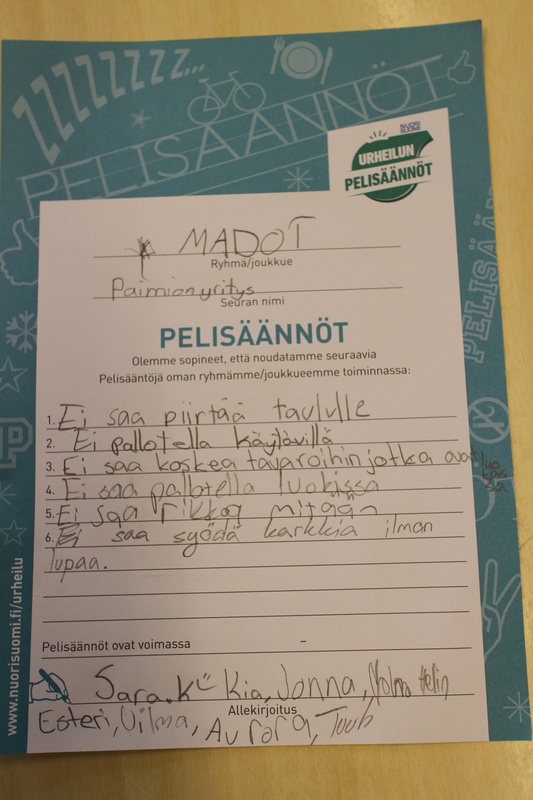 ZZZZZZZZ...
PELISÄÄNNÖT
NUORI SUOMI
URHEILUN
PELISÄÄNNÖT
MADOT
Ryhmä/joukkue
Paimionyritys
Seuran nimi
PELISÄÄNNÖT
Olemme sopineet, että noudatamme seuraavia
Pelisääntöjä oman ryhmämme/joukkueemme toiminnassa:
1. Ei saa piirtää taululle
2. Ei pallotella käytävillä
3. Ei saa koskea tavaroihin jotka ovat luokissa
4. Ei saa pallotella luokissa
5. Ei saa rikkoa mitään
6. Ei saa syödä karkkia ilman
lupaa.
Pelisäännöt ovat voimassa -
Sara.K Kia, Jonna,
Allekirjoitus
Esteri, Vilma, Aurora, Tuuli
www.nuorisuomi.fi/urheilu